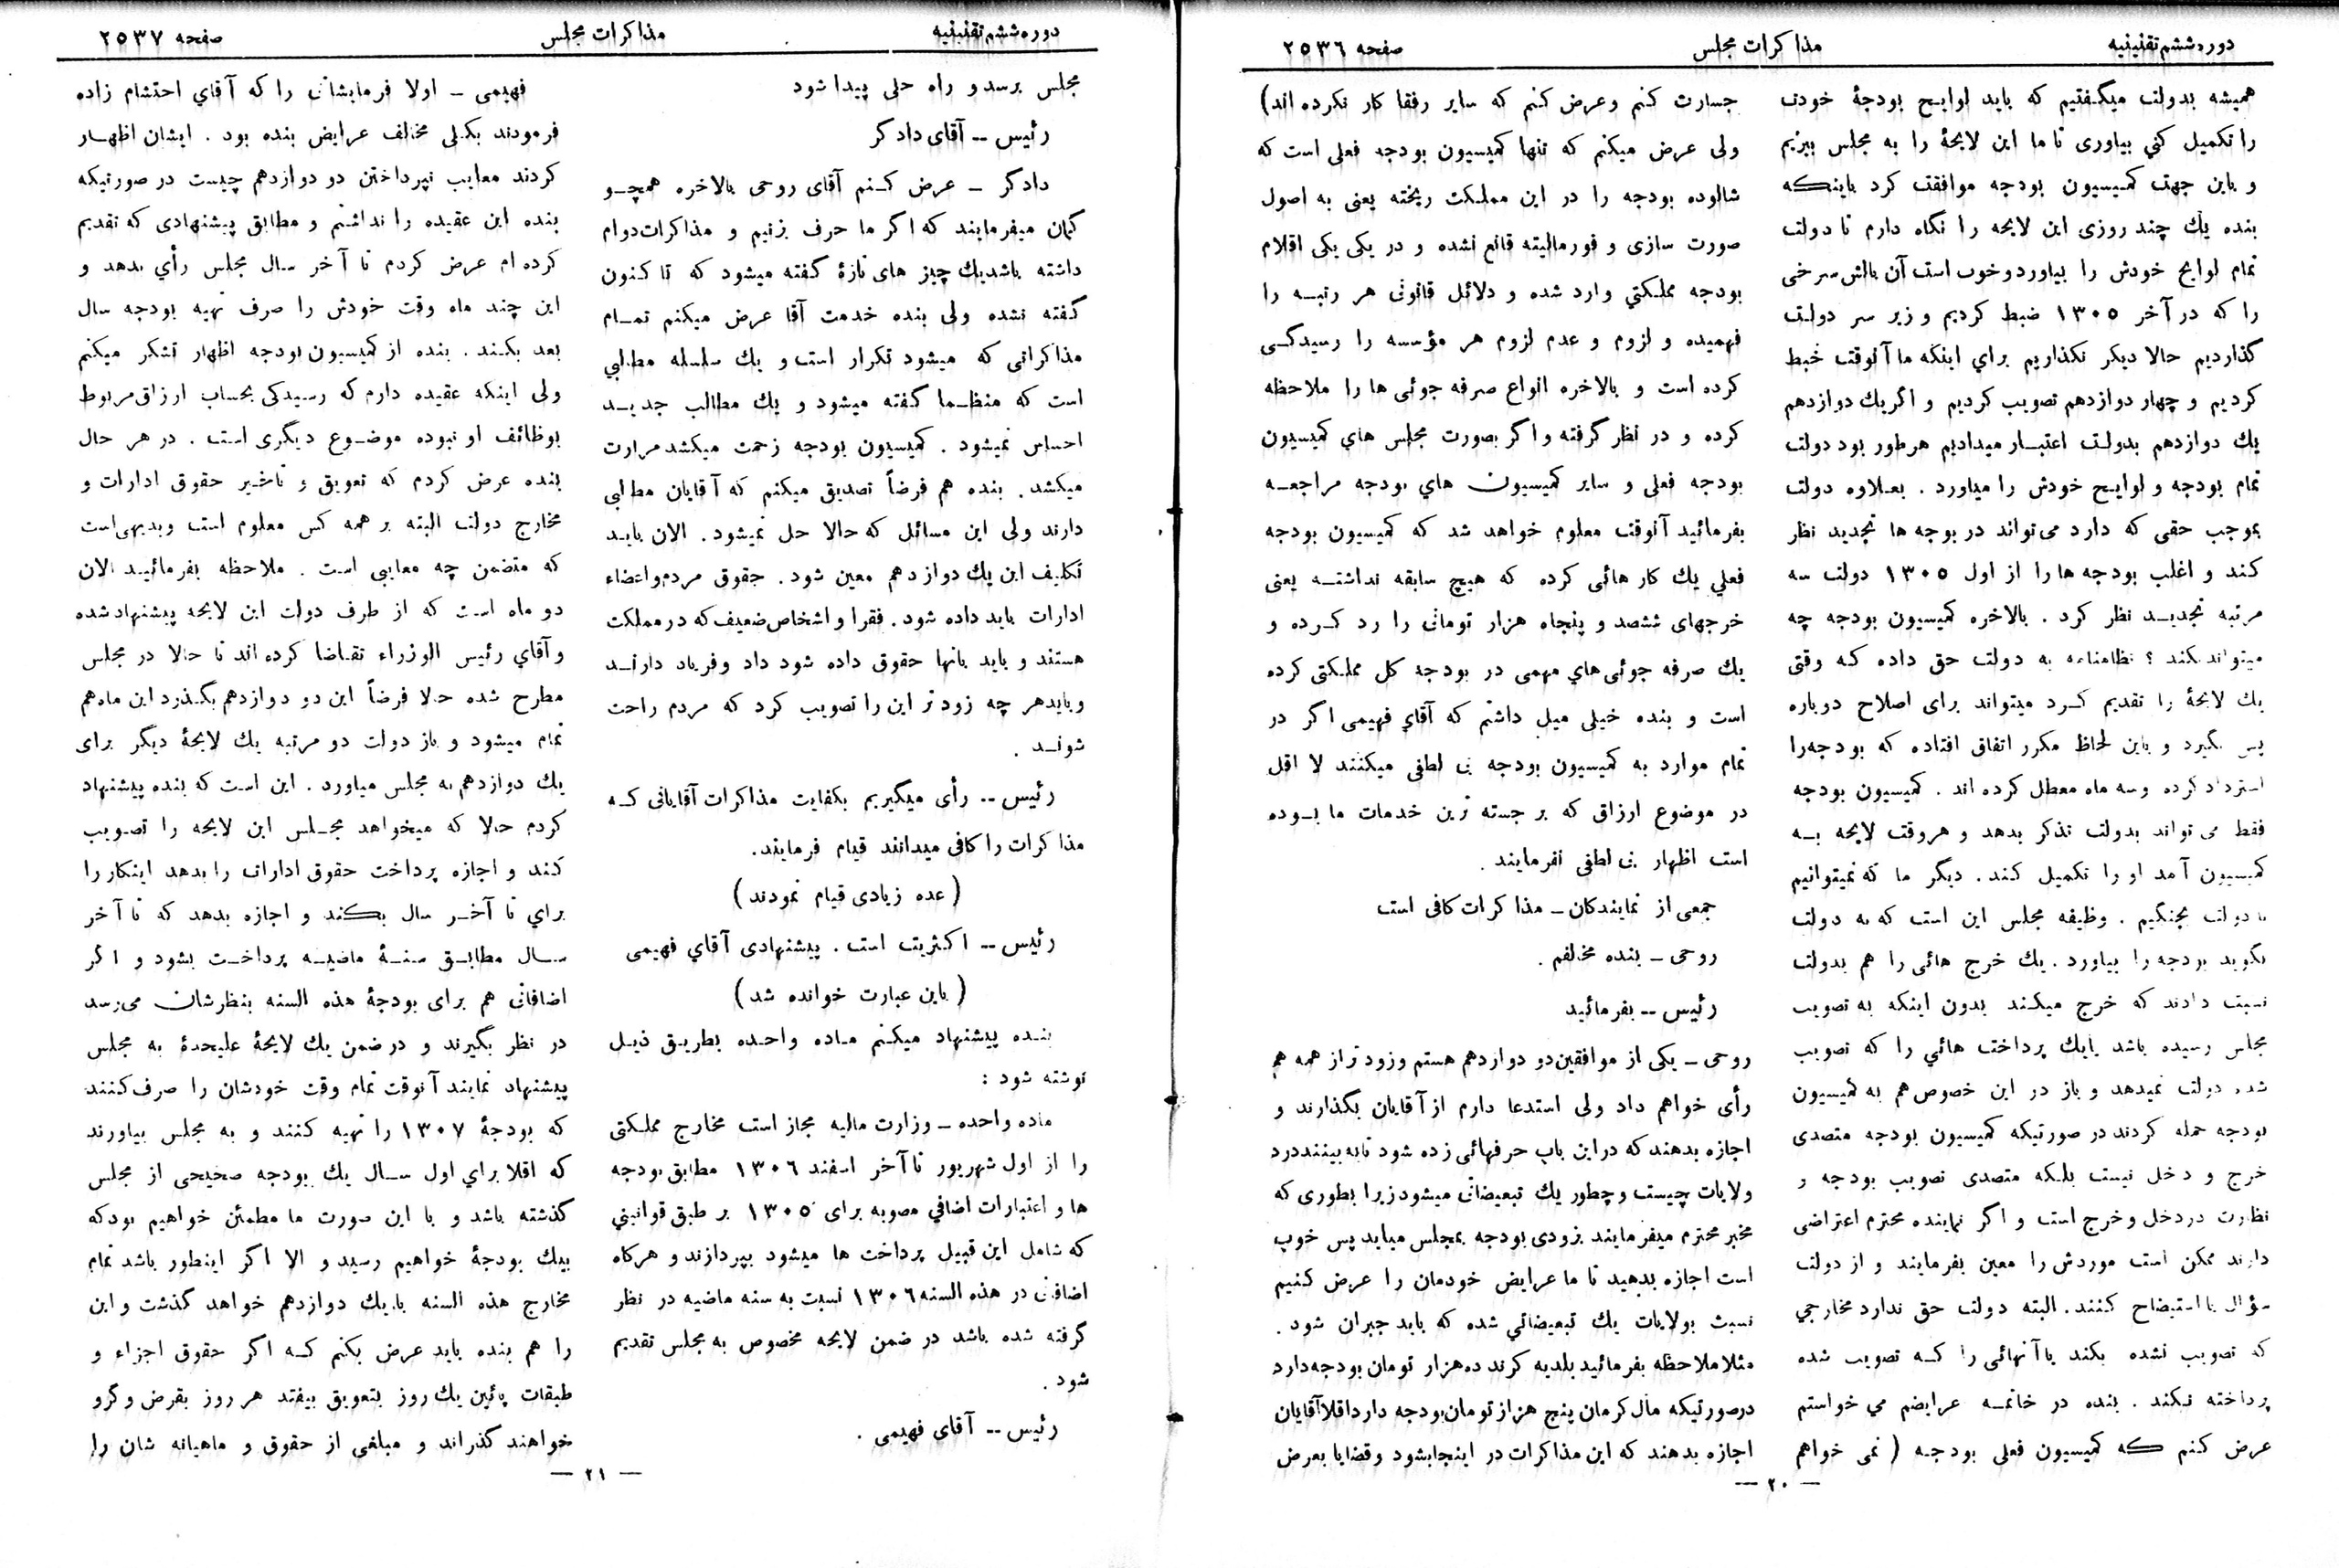 دوره ششم تقنینیه
مذاکرات مجلس
صفحه ۲۵۳۶
همیشه بدولت میگفتیم که باید لوایح بودجۀ خودت
را تکمیل کنی بیاوری تا ما این لایحۀ را به مجلس ببریم
و باین جهت کمیسیون بودجه موافقت کرد باینکه
بنده یك چند روزی این لایحه را نگاه دارم تا دولت
تمام لوایح خودش را بیاورد و خوب است آن بالش سرخی
را که در آخر ۱۳۰۵ ضبط کردیم و زیر سر دولت
گذاردیم حالا دیگر نگذاریم برای اینکه ما آنوقت ضبط
کردیم و چهار دوازدهم تصویب کردیم و اگر یك دوازدهم
یك دوازدهم بدولت اعتبار میدادیم هر طور بود دولت
تمام بودجه و لوایح خودش را میاورد . بعلاوه دولت
بموجب حقی که دارد می تواند در بوجه ها تجدید نظر
کند و اغلب بودجه ها را از اول ۱۳۰۵ دولت سه
مرتبه تجدید نظر کرد . بالاخره کمیسیون بودجه چه
میتواند بکند ؟ نظامنامه به دولت حق داده که وقتی
یك لایحۀ را تقدیم کرد میتواند برای اصلاح دوباره
پس بگیرد و باین لحاظ مکرر اتفاق افتاده که بودجه را
استرداد کرده و سه ماه معطل کرده اند . کمیسیون بودجه
فقط می تواند بدولت تذکر بدهد و هر وقت لایحه به
کمیسیون آمد او را تکمیل کند . دیگر ما که نمیتوانیم
با دولت بجنگیم . وظیفه مجلس این است که به دولت
بگوید بودجه را بیاورد . یك خرج هائی را هم بدولت
نسبت دادند که خرج میکند بدون اینکه به تصویب
مجلس رسیده باشد یا یك پرداخت هائی را که تصویب
شده دولت نمیدهد و باز در این خصوص هم به کمیسیون
بودجه حمله کردند در صورتیکه کمیسیون بودجه متصدی
خرج و دخل نیست بلکه متصدی تصویب بودجه و
نظارت در دخل و خرج است و اگر نماینده محترم اعتراضی
دارند ممکن است موردش را معین بفرمایند و از دولت
سؤال یا استیضاح کنند . البته دولت حق ندارد مخارجی
که تصویب نشده بکند یا آنهائی را که تصویب شده
پرداخته نکند . بنده در خاتمه عرایضم می خواستم
عرض کنم که کمیسیون فعلی بودجه ( نمی خواهم
جسارت کنم و عرض کنم که سایر رفقا کار نکرده اند)
ولی عرض میکنم که تنها کمیسیون بودجه فعلی است که
شالوده بودجه را در این مملکت ریخته یعنی به اصول
صورت سازی و فورمالیته قانع نشده و در یکی یکی اقلام
بودجه مملکتی وارد شده و دلائل قانونی هر رتبه را
فهمیده و لزوم و عدم لزوم هر مؤسسه را رسیدگی
کرده است و بالاخره انواع صرفه جوئی ها را ملاحظه
کرده و در نظر گرفته و اگر بصورت مجلس های کمیسیون
بودجه فعلی و سایر کمیسیون های بودجه مراجعه
بفرمائید آنوقت معلوم خواهد شد که کمیسیون بودجه
فعلی یك کار هائی کرده که هیچ سابقه نداشته یعنی
خرجهای ششصد و پنجاه هزار تومانی را رد کرده و
یك صرفه جوئی های مهمی در بودجه کل مملکتی کرده
است و بنده خیلی میل داشتم که آقای فهیمی اگر در
تمام موارد به کمیسیون بودجه بی لطفی میکنند لا اقل
در موضوع ارزاق که بر جسته ترین خدمات ما بوده
است اظهار بی لطفی نفرمایند .
جمعی از نمایندگان ــ مذاکرات کافی است
روحی ــ بنده مخالفم .
رئیس ــ بفرمائید
روحی ــ یکی از موافقین دو دوازدهم هستم وزود تر از همه هم
رأی خواهم داد ولی استدعا دارم از آقایان بگذارند و
اجازه بدهند که در این باب حرفهائی زده شود تا به بینند درد
ولایات چیست و چطور یك تبعیضاتی میشود زیرا بطوری که
مخبر محترم میفرمایند بزودی بودجه بمجلس میاید پس خوب
است اجازه بدهید تا ما عرایض خودمان را عرض کنیم
نسبت بولایات یك تبعیضاتی شده که باید جبران شود .
مثلا ملاحظه بفرمائید بلدیه کرند ده هزار تومان بودجه دارد
در صورتیکه مال کرمان پنج هزار تومان بودجه دارد اقلا آقایان
اجازه بدهند که این مذاکرات در اینجا بشود و قضایا بعرض
ــ ۲۰ ــ
دوره ششم تقنینیه
مذاکرات مجلس
صفحه ۲۵۳۷
مجلس برسد و راه حلی پیدا شود
رئیس ــ آقای دادگر
دادگر ــ عرض کنم آقای روحی بالاخره همچو
گمان میفرمایند که اگر ما حرف بزنیم و مذاکرات دوام
داشته باشد یك چیز های تازۀ گفته میشود که تا کنون
گفته نشده ولی بنده خدمت آقا عرض میکنم تمام
مذاکراتی که میشود تکرار است و یك سلسله مطالبی
است که منظما گفته میشود و یك مطالب جدید
احساس نمیشود . کمیسیون بودجه زحمت میکشد مرارت
میکشد . بنده هم فرضاً تصدیق میکنم که آقایان مطالبی
دارند ولی این مسائل که حالا حل نمیشود . الان باید
تکلیف این یك دوازدهم معین شود . حقوق مردم و اعضاء
ادارات باید داده شود . فقرا و اشخاص ضعیف که در مملکت
هستند و باید بآنها حقوق داده شود داد و فریاد دارند
و باید هر چه زود تر این را تصویب کرد که مردم راحت
شوند .
رئیس ــ رأی میگیریم بکفایت مذاکرات آقایانی که
مذاکرات را کافی میدانند قیام فرمایند .
( عده زیادی قیام نمودند )
رئیس ــ اکثریت است . پیشنهادی آقای فهیمی
( باین عبارت خوانده شد )
بنده پیشنهاد میکنم ماده واحده بطریق ذیل
نوشته شود :
ماده واحده ــ وزارت مالیه مجاز است مخارج مملکتی
را از اول شهریور تا آخر اسفند ۱۳۰۶ مطابق بودجه
ها و اعتبارات اضافی مصوبه برای ۱۳۰۵ بر طبق قوانینی
که شامل این قبیل پرداخت ها میشود بپردازند و هر گاه
اضافاتی در هذه السنه ۱۳۰۶ نسبت به سنه ماضیه در نظر
گرفته شده باشد در ضمن لایحه مخصوص به مجلس تقدیم
شود .
رئیس ــ آقای فهیمی .
فهیمی ــ اولا فرمایشاتی را که آقای احتشام زاده
فرمودند بکلی مخالف عرایض بنده بود . ایشان اظهار
کردند معایب نپرداختن دو دوازدهم چیست در صورتیکه
بنده این عقیده را نداشتم و مطابق پیشنهادی که تقدیم
کرده ام عرض کردم تا آخر سال مجلس رأی بدهد و
این چند ماه وقت خودش را صرف تهیه بودجه سال
بعد بکند . بنده از کمیسیون بودجه اظهار تشکر میکنم
ولی اینکه عقیده دارم که رسیدگی بحساب ارزاق مربوط
بوظائف او نبوده موضوع دیگری است . در هر حال
بنده عرض کردم که تعویق و تاخیر حقوق ادارات و
مخارج دولت البته بر همه کس معلوم است و بدیهی است
که متضمن چه معایبی است . ملاحظه بفرمائید الان
دو ماه است که از طرف دولت این لایحه پیشنهاد شده
و آقای رئیس الوزراء تقاضا کرده اند تا حالا در مجلس
مطرح شده حالا فرضاً این دو دوازدهم بگذرد این ماه هم
تمام میشود و باز دولت دو مرتبه یك لایحۀ دیگر برای
یك دوازدهم به مجلس میاورد . این است که بنده پیشنهاد
کردم حالا که میخواهد مجلس این لایحه را تصویب
کند و اجازه پرداخت حقوق ادارات را بدهد اینکار را
برای تا آخر سال بکند و اجازه بدهد که تا آخر
سال مطابق سنۀ ماضیه پرداخت بشود و اگر
اضافاتی هم برای بودجۀ هذه السنه بنظرشان میرسد
در نظر بگیرند و در ضمن یك لایحۀ علیحدۀ به مجلس
پیشنهاد نمایند آنوقت تمام وقت خودشان را صرف کنند
که بودجۀ ۱۳۰۷ را تهیه کنند و به مجلس بیاورند
که اقلا برای اول سال یك بودجه صحیحی از مجلس
گذشته باشد و با این صورت ما مطمئن خواهیم بود که
بیك بودجۀ خواهیم رسید و الا اگر اینطور باشد تمام
مخارج هذه السنه با یك دوازدهم خواهد گذشت و این
را هم بنده باید عرض بکنم که اگر حقوق اجزاء و
طبقات پائین یك روز بتعویق بیفتد هر روز بقرض و گرو
خواهند گذراند و مبلغی از حقوق و ماهیانه شان را
ــ ۲۱ ــ